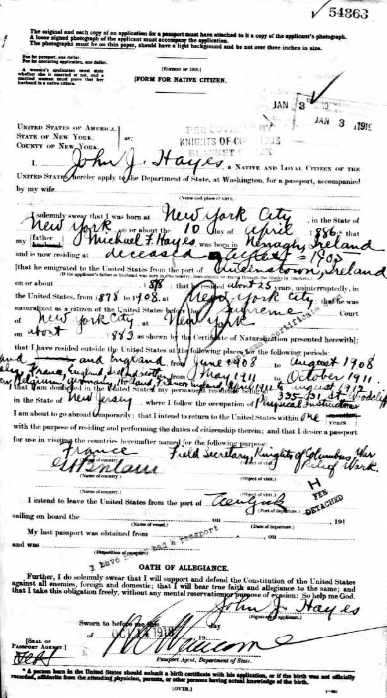 54363
The original and each copy of an application for a passport must have attached to it a copy of the applicant's photograph.
A loose signed photograph of the applicant must accompany the application.
The photographs must be on thin paper, should have a light background and be not over three inches in size.
Fee for passport, one dollar.
Fee for executing application, one dollar.
A woman's application must state
whether she is married or not, and a
married woman must prove that her
husband is a native citizen.
[FORM FOR NATIVE CITIZEN.
JAN 3
JAN 3 1919
KNIGHTS OF COLUMBUS
UNITED STATES OF AMERICA,
STATE OF NEW YORK,
COUNTY OF NEW YORK
ss:
I, John J. Hayes, a NATIVE AND LOYAL CITIZEN OF THE
UNITED STATES, hereby apply to the Department of State, at Washington, for a passport, accompanied
by my wife
(Name and place of birth.)
I solemnly swear that I was born at New York City, in the State of
New York on or about the 10 day of April 1886; that
my father Michael F. Hayes was born in Nenagh, Ireland
and is now residing at deceased
[that he emigrated to the United States from the port of Queenstown, Ireland
on or about 1878; that he resided about 25 years, uninterruptedly, in
the United States, from 1878 to 1908, at New York City that he was
naturalized as a citizen of the United States before the Supreme Court
of New York City, at New York
on about 1883 as shown by the Certificate of Naturalization presented herewith];
that I have resided outside the United States at the following places for the following periods:
and England from June 1908 to August 1908
May 1911 to October 1911.
1912 to August 1912
that I am domiciled in the United States, my permanent residence being at 335-31 St
in the State of New Jersey, where I follow the occupation of Physical Instructor
I am about to go abroad temporarily; that I intend to return to the United States within one years
with the purpose of residing and performing the duties of citizenship therein; and that I desire a passport
for use in visiting the countries hereinafter named for the following purpose:
France Field Secretary, Knights of Columbus, War
Gt Britain Relief Work.
(Name of country.) (Object of visit.)
I intend to leave the United States from the port of New York
(Port of departure.)
FEE
DETACHED
sailing on board the on 191
(Name of vessel.) (Date of departure.)
My last passport was obtained from on
and was
(Disposition of passport.)
I have never had a passport
OATH OF ALLEGIANCE.
Further, I do solemnly swear that I will support and defend the Constitution of the United States
against all enemies, foreign and domestic; that I will bear true faith and allegiance to the same; and
that I take this obligation freely, without any mental reservation or purpose of evasion: So help me God.
John J Hayes
(Signature of applicant.)
Sworn to before me this day
1918
[SEAL OF
PASSPORT AGENT.]
Passport Agent, Department of State.
* A person born in the United States should submit a birth certificate with his application, or if the birth was not officially
recorded, affidavits from the attending physician, parents, or other persons having actual knowledge of the birth.
[OVER.]